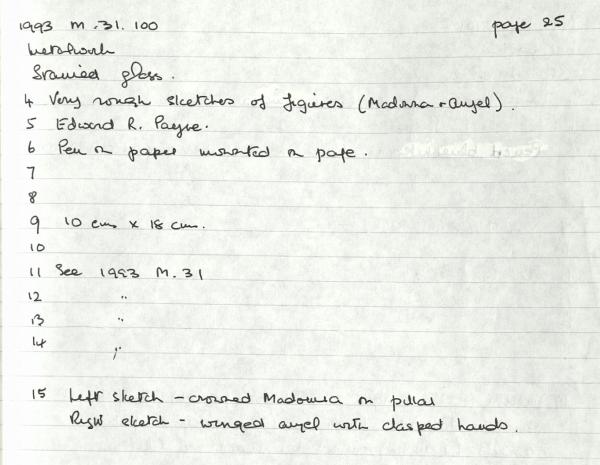 1993 M.31.100 page 25
Metalwork
Stained glass.
4 Very rough sketches of figures (Madonna + angel).
5 Edward R. Payne.
6 Pen on paper mounted on page.
7
8
9 10 cms x 18 cm.
10
11 See 1993 M.31
12 "
13 "
14 "
15 Left sketch - crowned Madonna on pillar
Right sketch - winged angel with clasped hands.